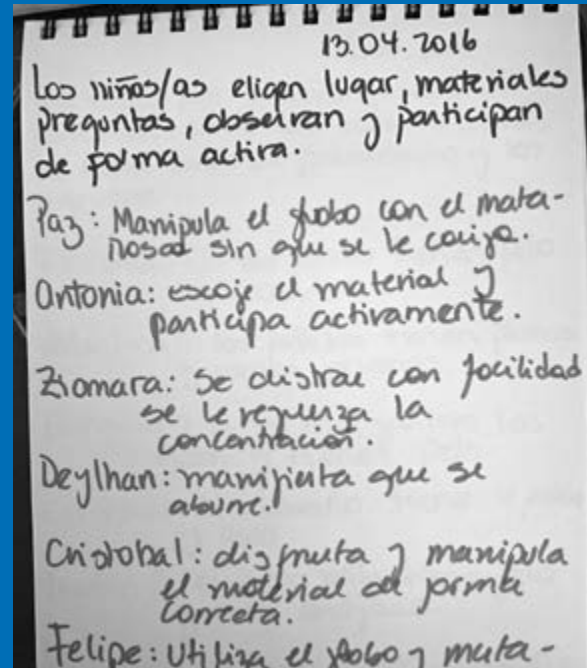 13.04.2016
Los niños/as eligen lugar, materiales
preguntas, observan y participan
de forma activa.
Paz: Manipula el globo con el mata-
moscas sin que se le caiga.
Antonia: escoje el material y
participa activamente.
Ziomara: Se distrae con facilidad
se le refuerza la
concentración.
Deylhan: manifiesta que se
aburre.
Cristobal: disfruta y manipula
el material de forma
correcta.
Felipe: Utiliza el globo y mata-